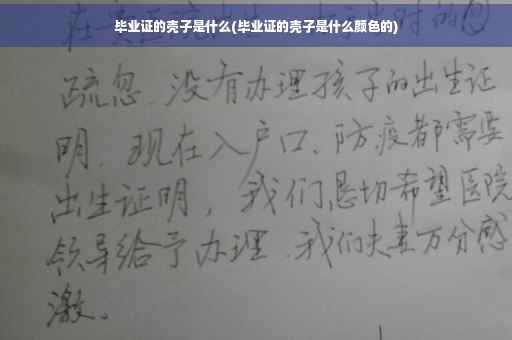 毕业证的壳子是什么(毕业证的壳子是什么颜色的)
疏忽.没有办理孩子的出生证
明.现在入户口、防疫都需要
出生证明，我们恳切希望医院
领导给予办理.我们夫妻万分感
激。